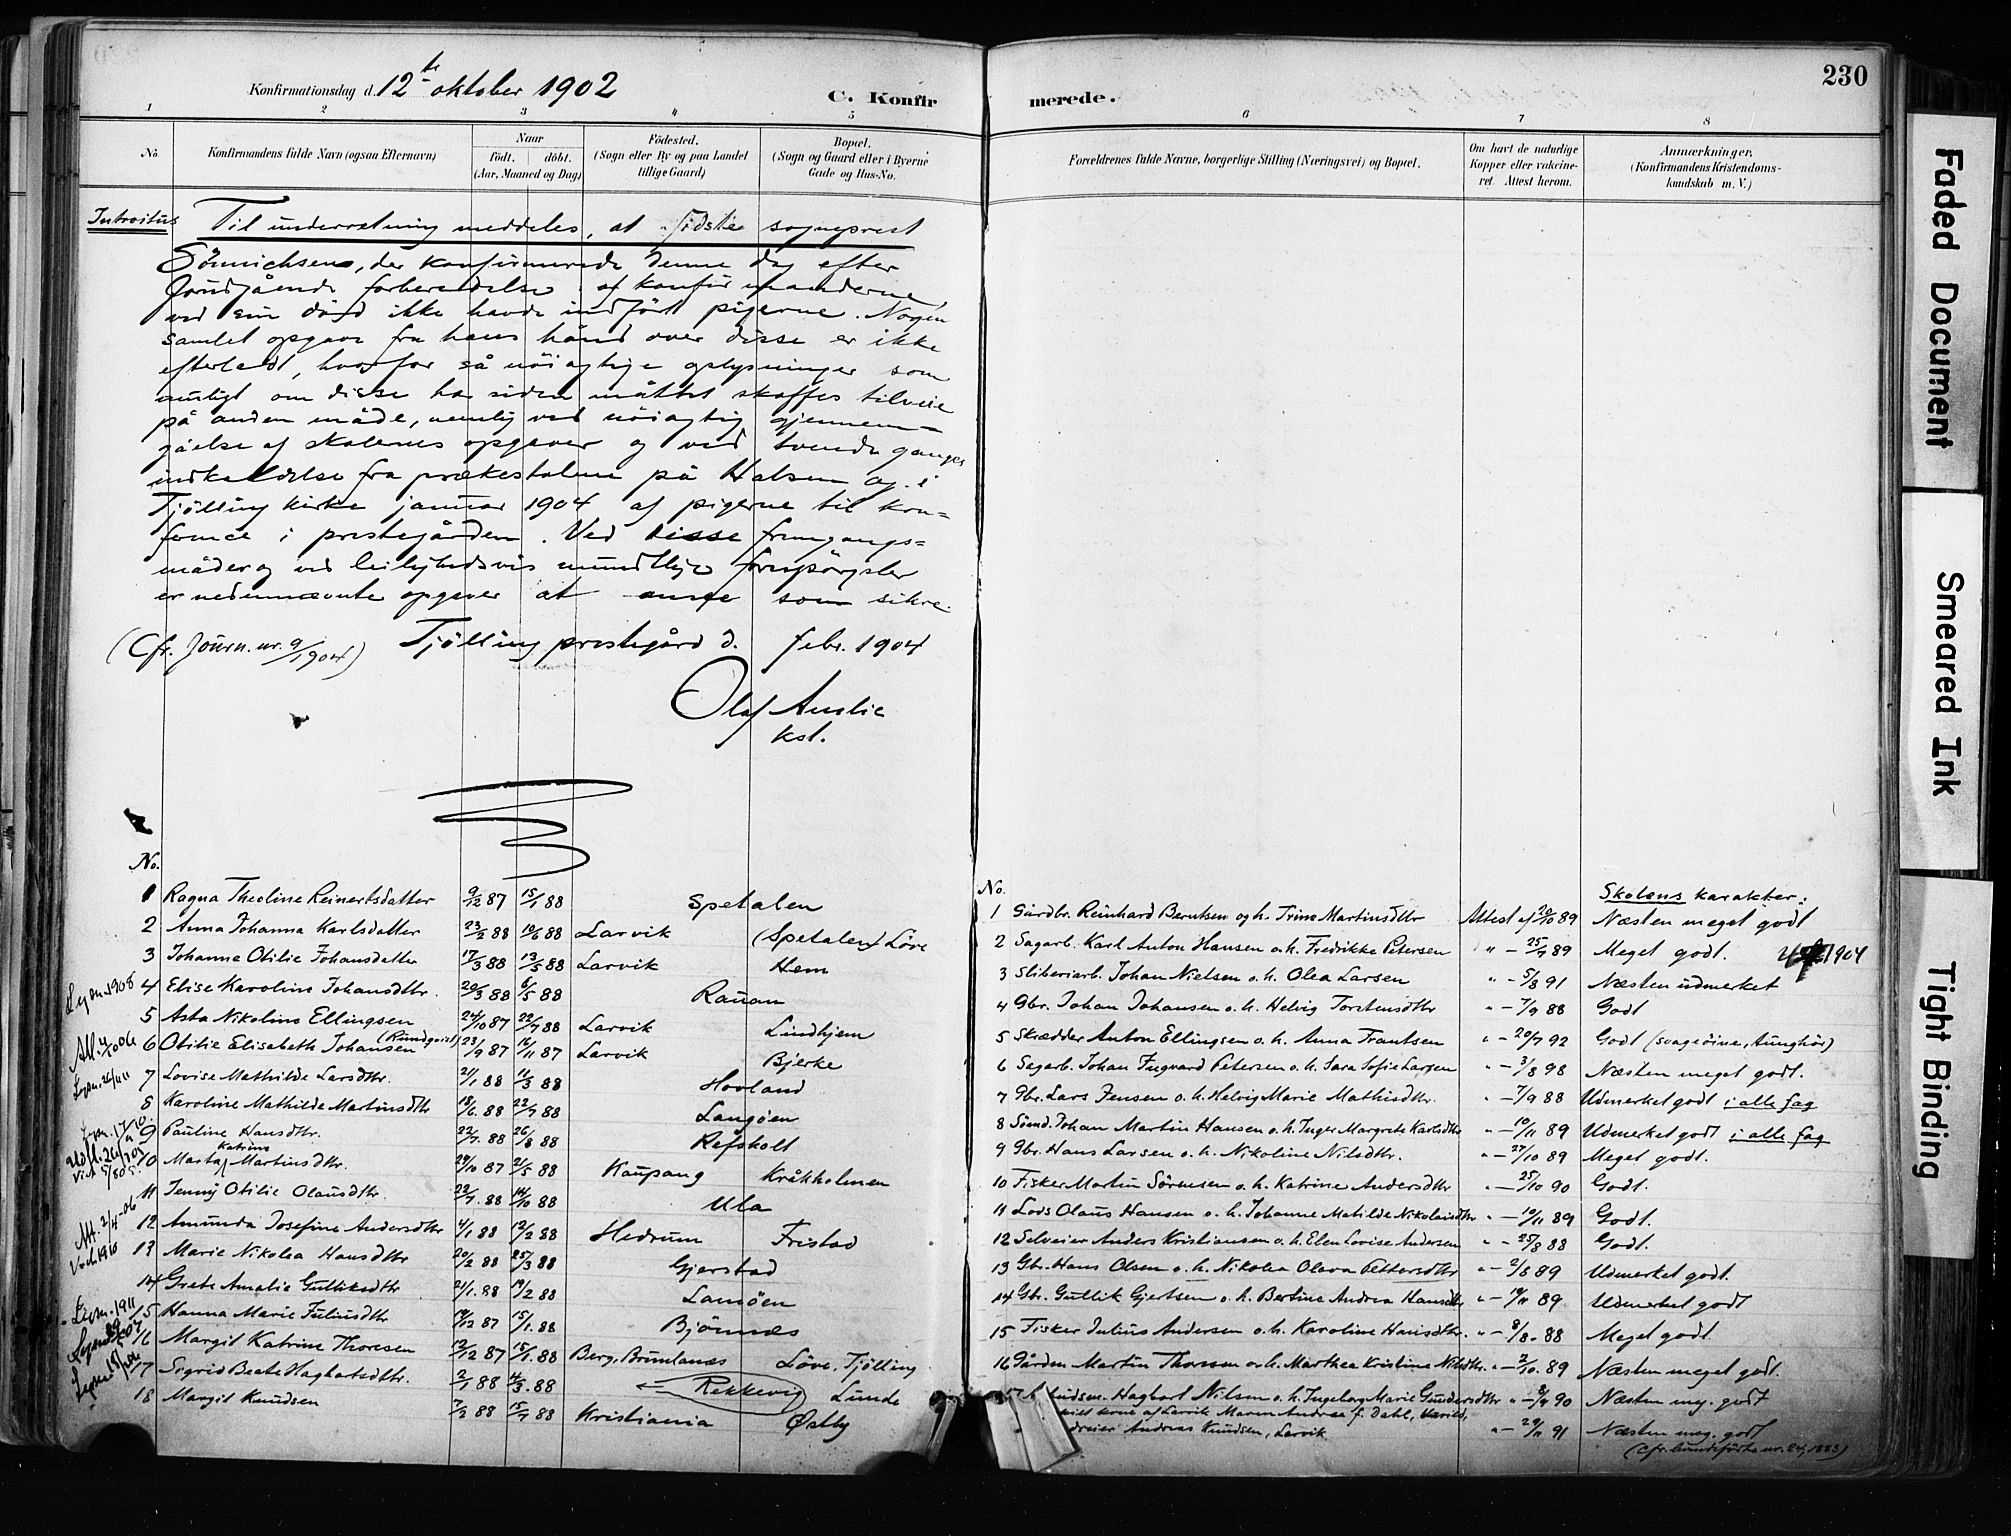 230
Konfirmationsdag d. 12te oktober 1902
C. Konfirmerede.
1 2 3 4 5 6 7 8
No.
Konfirmandens fulde Navn (ogsaa Efternavn)
Naar
födt. döbt.
(Aar, Maaned og Dag)
Födested.
(Sogn eller By og paa Landet
tillige Gaard)
Bopæl.
(Sogn og Gaard eller i Byerne
Gade og Hus-No.
Forældrenes fulde Navne, borgerlige Stilling (Næringsvei) og Bopæl.
Om havt de naturlige
Kopper eller vakcine-
ret. Attest herom.
Anmærkninger,
(Konfirmandens Kristendoms-
kundskab m. V.)
Introitus
Til underretning meddeles, at sidste sogneprest
Sönnichsen, der konfirmerede denne dag efter
forudgående forberedelse af konfirmanderne,
ved sin död ikke havde indfört pigerne. Nogen
samlet opgave fra hans hånd over disse er ikke
efterladt, hvorfor så nöiagtige oplysninger som
muligt om disse ha siden måttet skaffes tilveie
på anden måde, nemlig ved nöiagtig gjennem-
gåelse af skolernes opgaver og ved tvende ganges
indkaldelse fra prækestolene på Halsen og i
Tjölling kirke januar 1904 af pigerne til kon-
ference i prestegården. Ved disse fremgangs=
måder og ved leilighedsvis mundtlige forespörgsler
er nedennævnte opgaver at anse som sikre.
(Cfr. Journ. nr. 9/1904) Tjölling prestegård d. febr. 1904
Olaf Anslie
kst.
No.
1 Ragna Theoline Reinertsdatter 9/12 87 15/1 88 Spetalen
2 Anna Johanna Karlsdatter 23/2 88 10/6 88 Larvik (Spetalen) Löve
3 Johanne Otilie Johansdatter 17/3 88 13/5 88 Larvik Hem
4 Elise Karoline Johansdtr. 20/3 88 6/5 88 Rauan
5 Asta Nikoline Ellingsen 24/10 87 22/7 88 Larvik Lindhjem
6 Otilie Elisabeth Johansen (Rundqvist) 23/9 87 16/11 87 Larvik Bjerke
7 Lovise Mathilde Larsdtr. 21/1 88 11/3 88 Hovland
8 Karoline Mathilde Martinsdtr 18/6 88 22/7 88 Langöen
9 Pauline Hansdtr. 22/7 88 26/8 88 Refsholt
10 Marta Katrine Martinsdtr. 29/10 87 21/5 88 Kaupang Kråkholmen
11 Jenny Otilie Olausdtr. 22/7 88 14/10 88 Ula
12 Amunda Josefine Andersdtr 4/1 88 12/2 88 Hedrum Fristad
13 Marie Nikolea Hansdtr 20/2 88 25/3 88 Gjerstad
14 Grete Amalie Gulliksdtr 21/1 88 19/2 88 Lamöen
15 Hanna Marie Juliusdtr 19/12 87 15/1 88 Björnnes
16 Margit Katrine Thoresen 12/12 87 15/1 88 Berg, Brunlanæs Löve, Tjölling
17 Sigrid Beate Hagbartsdtr. 2/1 88 4/3 88 Rekkevig Lunde
18 Margit Knudsen 7/2 88 15/7 88 Kristiania Østby
No. Skolens karakter:
1 Gårdbr. Reinhard Berntsen og h. Trine Martinsdtr Attest af 20/10 89 Næsten meget godt
2 Sagarb. Karl Anton Hansen o.h. Fredrikke Petersen " - 25/7 89 Meget godt. 1904
3 Sliberiarb. Johan Nielsen o.h. Olea Larsen " - 5/8 91 Næsten udmerket
4 Gbr. Johan Johansen o.h. Helvig Torstensdtr " - 7/9 88 Godt
5 Skrædder Anton Ellingsen o.h. Anna Frantsen " - 20/7 92 Godt (svage öine, tunghör)
6 Sagarb. Johan Ingvard Petersen o.h. Sara Sofie Larsen " - 3/8 98 Næsten meget godt.
7 Gbr. Lars Jensen o.h. Helvig Marie Mathisdtr " - 7/9 88 Udmerket godt i alle fag
8 Sömd. Johan Martin Hansen o.h. Inger Margrete Karlsdtr " - 10/11 89 Udmerket godt i alle fag
9 Gbr. Hans Larsen o.h. Nikoline Nilsdtr. " - 27/10 89 Meget godt.
10 Fisker Martin Sörensen o.h. Katrine Andersdtr " - 25/10 90 Godt.
11 Lods Olaus Hansen o.h. Johanne Matilde Nikolaisdtr " - 10/11 89 Godt.
12 Selveier Anders Kristiansen o.h. Elen Lovise Andersen " - 25/8 88 Godt.
13 Gbr. Hans Olsen o.h. Nikolea Olava Pettersdtr " - 2/8 89 Udmerket godt.
14 Gbr. Gullik Gjertsen o.h. Bertine Andrea Hansdtr " - 19/11 89 Udmerket godt
15 Fisker Julius Andersen o.h. Karoline Hansdtr. " - 8/8 88 Meget godt.
16 Gården Martin Thoresen o.h. Marthea Kristine Nilsdtr " - 2/10 89 Næsten meget godt.
Hagbart Nilsen o.h. Ingeborg Marie Gundersdtr " - 90 Næsten meg. godt
kone af Larvik Maren Andrea f. Dahl,
Andreas Knudsen, Larvik " - 29/11 91 Næsten meg. godt
nr. 24, 1883)
Faded Document
Smeared Ink
Tight Binding